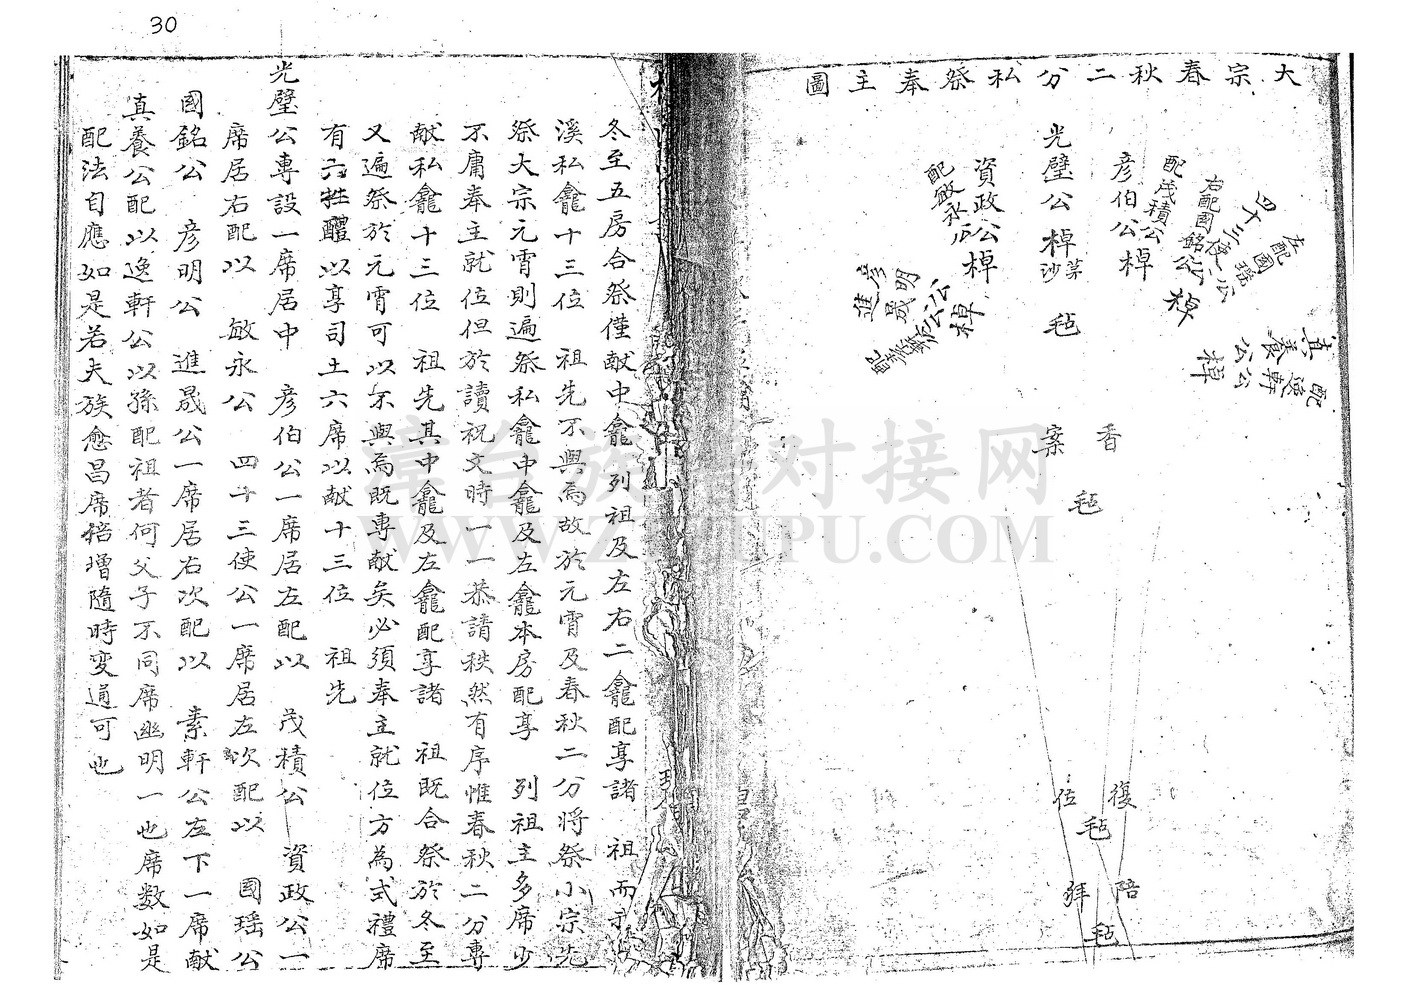 30
大宗春秋二分私祭奉主圖
真養公
配逸軒公
棹
左配國瑶公
四十三使公
右配國銘公
棹
彦伯公棹
配茂積公
光璧公棹
茅沙
毡
資政公棹
配敏永公
彦明公
進晟公
棹
香案
毡
復位
毡
陪拜
毡
冬至五房合祭僅献中龕列祖及左右二龕配享諸 祖而
溪私龕十三位 祖先不與焉故於元宵及春秋二分將祭小宗先
祭大宗元宵則遍祭私龕中龕及左龕本房配享 列祖主多席少
不庸奉主就位但於讀祝文時一一恭請秩然有序惟春秋二分專
献私龕十三位 祖先其中龕及左龕配享諸 祖既合祭於冬至
又遍祭於元宵可以不與焉既專献矣必須奉主就位方為式禮席
有六牲醴以享司土六席以献十三位 祖先
光璧公專設一席居中 彦伯公一席居左配以 茂積公 資政公一
席居右配以 敏永公 四十三使公一席居左次配以 國瑶公
國銘公 彦明公 進晟公一席居右次配以 素軒公左下一席献
真養公配以逸軒公以孫配祖者何父子不同席幽明一也席数如是
配法自應如是若夫族愈昌席搭增隨時变通可也